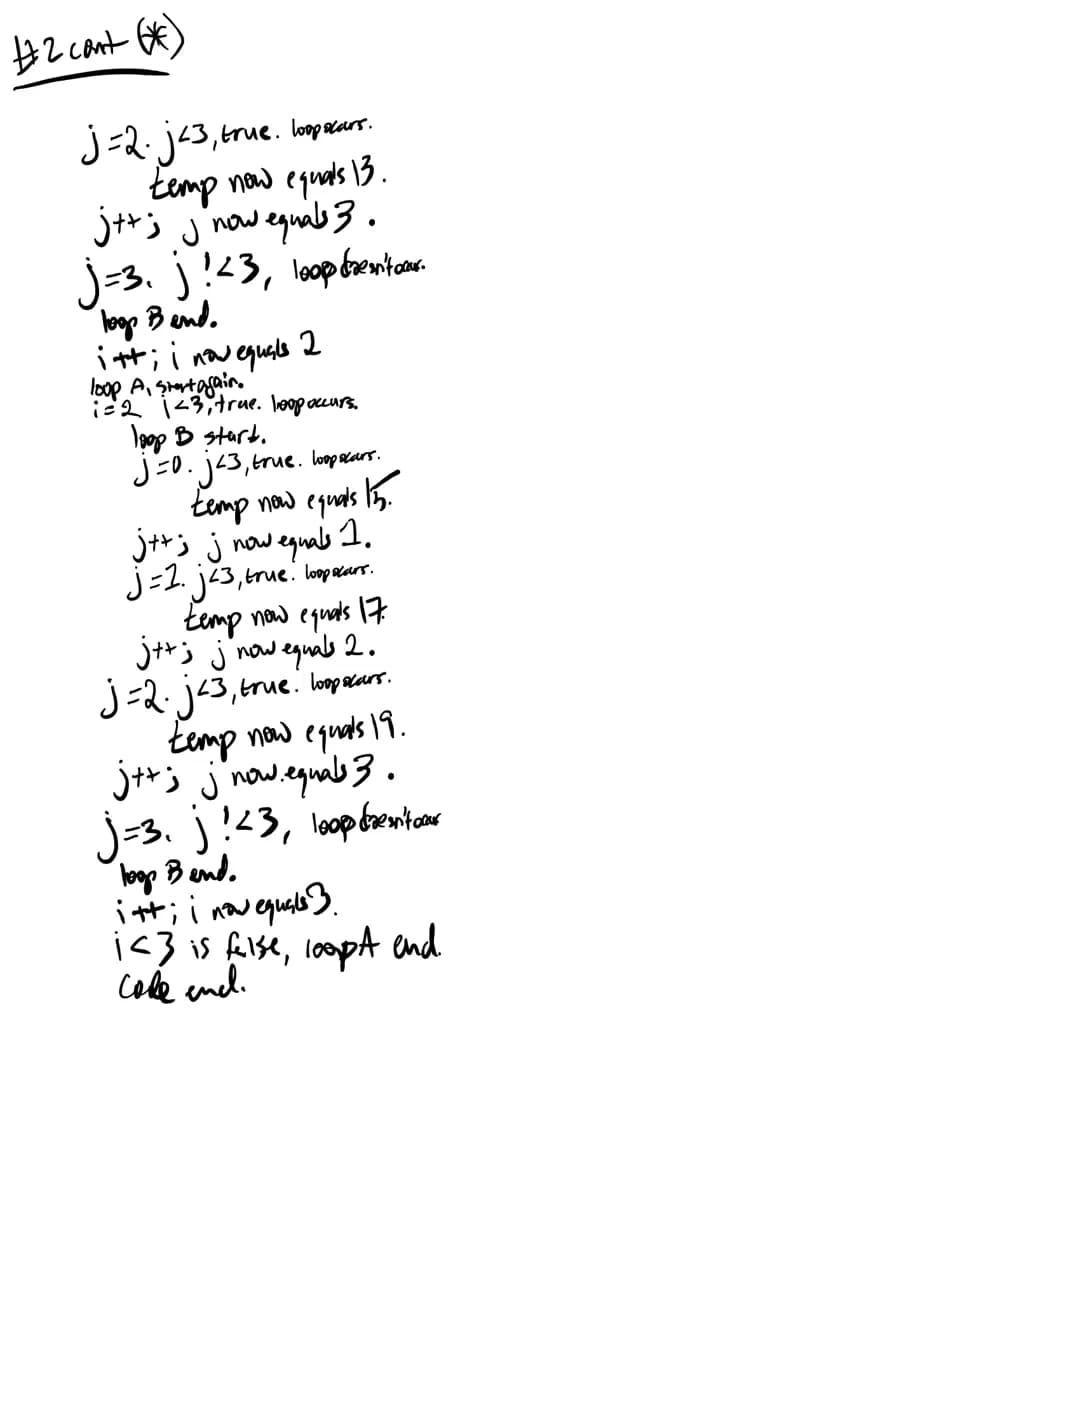 #2 cont (*)
j=2. j<3, true. loop occurs.
temp now equals 13.
j++; j now equals 3.
j=3. j !<3, loop doesn't occur.
loop B end.
i++; i now equals 2
loop A, start again.
i=2 i<3, true. loop occurs.
loop B start.
j=0. j<3, true. loop occurs.
temp now equals 15.
j++; j now equals 1.
j=1. j<3, true. loop occurs.
temp now equals 17.
j++; j now equals 2.
j=2. j<3, true. loop occurs.
temp now equals 19.
j++; j now equals 3.
j=3. j !<3, loop doesn't occur
loop B end.
i++; i now equals 3.
i<3 is false, loop A end.
Code end.